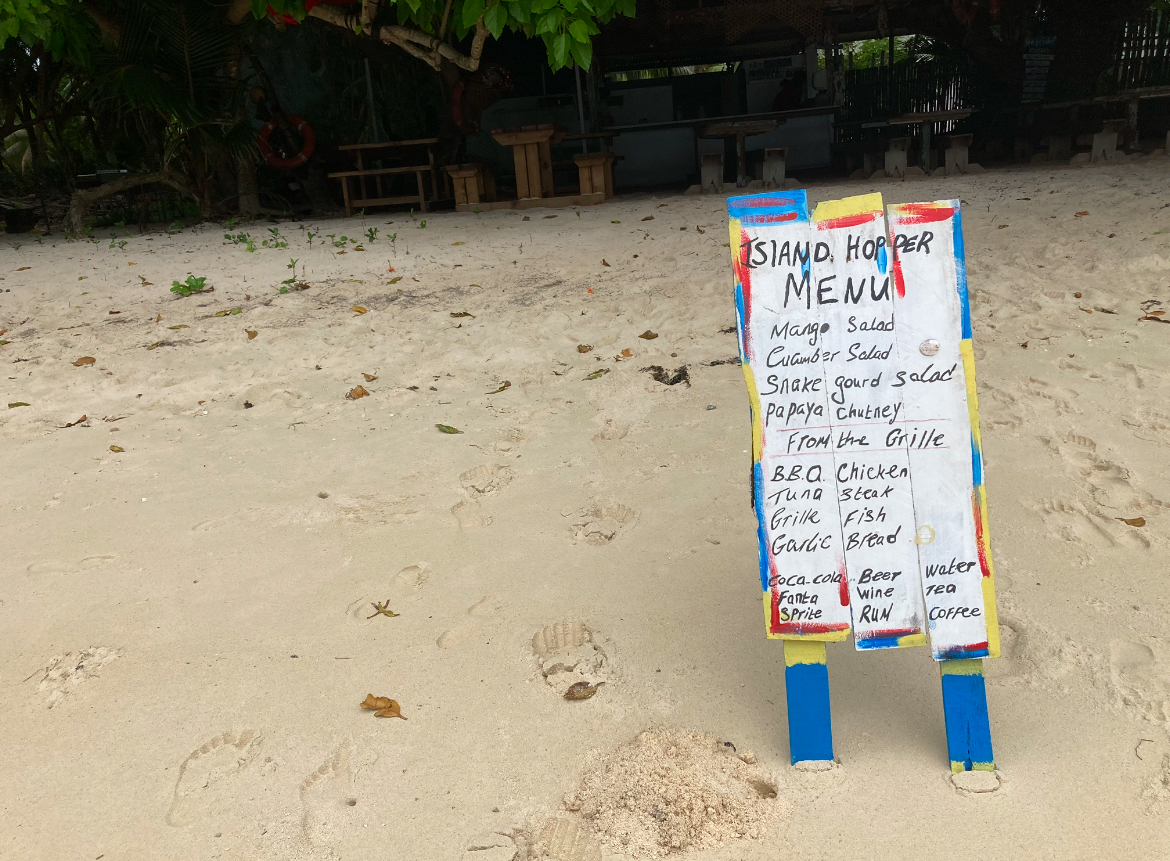 ISLAND. HOPPER
MENU
Mango Salad
Cucumber Salad
Snake gourd salad
Papaya chutney
FROM the Grille
B.B.Q. Chicken
Tuna Steak
Grille Fish
Garlic Bread
Coca-cola Beer Water
Fanta Wine Tea
Sprite RUM Coffee